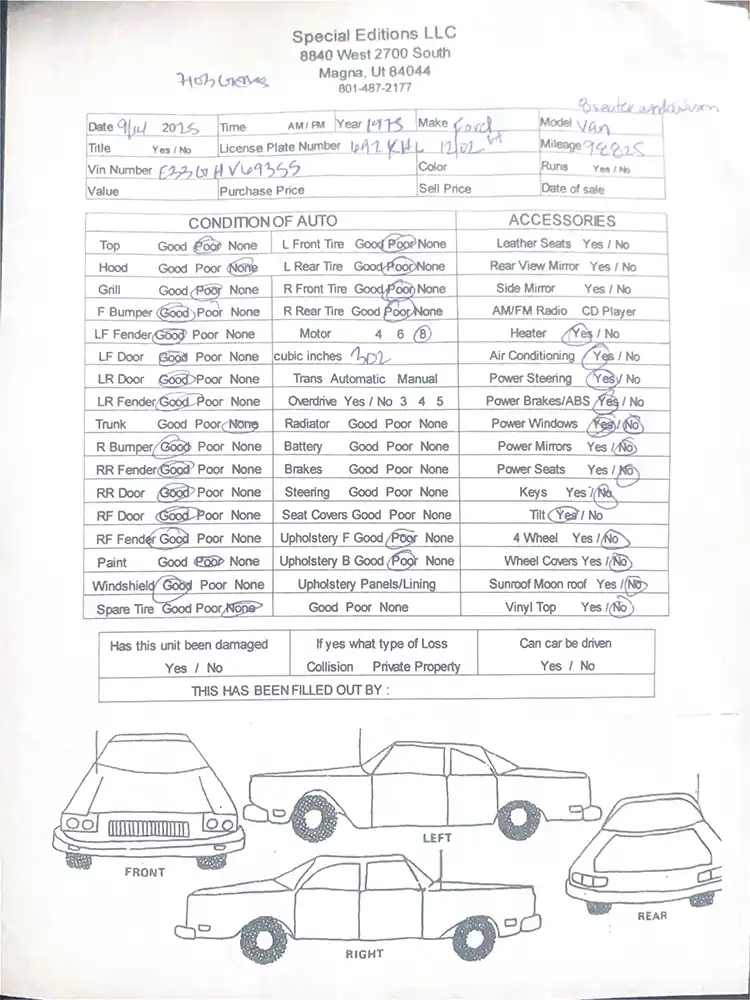 Special Editions LLC
8840 West 2700 South
Magna, Ut 84044
801-487-2177
Date 9/11 2025 Time AM / PM Year 1975 Make Ford Model Van
Title Yes / No License Plate Number 692 KHL 12/02 Mileage 98825
Vin Number E33GHV69355 Color Runs Yes / No
Value Purchase Price Sell Price Date of sale
CONDITION OF AUTO ACCESSORIES
Top Good Poor None L Front Tire Good Poor None Leather Seats Yes / No
Hood Good Poor None L Rear Tire Good Poor None Rear View Mirror Yes / No
Grill Good Poor None R Front Tire Good Poor None Side Mirror Yes / No
F Bumper Good Poor None R Rear Tire Good Poor None AM/FM Radio CD Player
LF Fender Good Poor None Motor 4 6 8 Heater Yes / No
LF Door Good Poor None cubic inches 302 Air Conditioning Yes / No
LR Door Good Poor None Trans Automatic Manual Power Steering Yes / No
LR Fender Good Poor None Overdrive Yes / No 3 4 5 Power Brakes/ABS Yes / No
Trunk Good Poor None Radiator Good Poor None Power Windows Yes / No
R Bumper Good Poor None Battery Good Poor None Power Mirrors Yes / No
RR Fender Good Poor None Brakes Good Poor None Power Seats Yes / No
RR Door Good Poor None Steering Good Poor None Keys Yes / No
RF Door Good Poor None Seat Covers Good Poor None Tilt Yes / No
RF Fender Good Poor None Upholstery F Good Poor None 4 Wheel Yes / No
Paint Good Poor None Upholstery B Good Poor None Wheel Covers Yes / No
Windshield Good Poor None Upholstery Panels/Lining Sunroof Moon roof Yes / No
Spare Tire Good Poor None Good Poor None Vinyl Top Yes / No
Has this unit been damaged If yes what type of Loss Can car be driven
Yes / No Collision Private Property Yes / No
THIS HAS BEEN FILLED OUT BY :
LEFT
FRONT
REAR
RIGHT